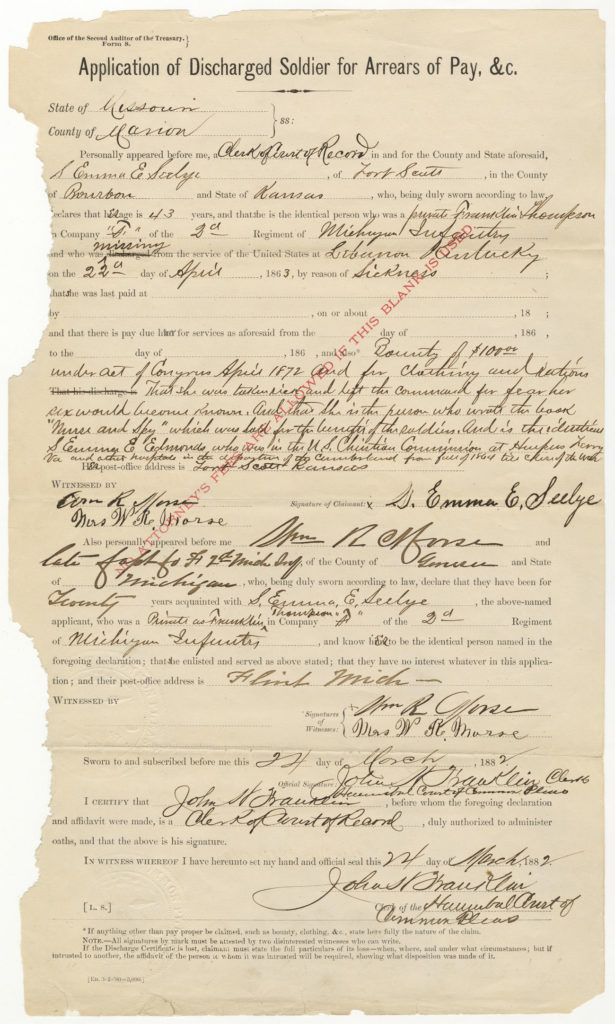 Office of the Second Auditor of the Treasury.}
Form 8.
Application of Discharged Soldier for Arrears of Pay, &c.
State of Missouri
County of Marion } ss:
Personally appeared before me, a Clerk of Court of Record in and for the County and State aforesaid,
S Emma E Seelye, of Fort Scott, in the County
of Bourbon and State of Kansas, who, being duly sworn according to law,
declares that her age is 43 years, and that she is the identical person who was a private Franklin Thompson
in Company "F", of the 2d Regiment of Michigan Infantry
missing
and who was discharged from the service of the United States at Lebanon Kentucky
on the 22d day of April, 1863, by reason of Sickness ;
that she was last paid at
by , on or about , 18 ;
and that there is pay due her for services as aforesaid from the day of , 186 ,
to the day of , 186 , and also* Bounty of $100.00
under act of Congress April 1872 and for clothing and rations
That his discharge is That she was taken sick and left the command for fear her
sex would become known. And that she is the person who wrote the book
"Nurse and Spy" which was sold for the benefit of the soldiers. And is the identical
S Emma E Edmonds who was in the U.S. Christian Commission at Harpers Ferry
Va and other hospitals in the department of the Cumberland from fall of 1863 till close of the war
Her post-office address is Fort Scott Kansas
NO ATTORNEY'S FEE WILL BE ALLOWED IF THIS BLANK IS USED.
WITNESSED BY
Wm R Morse Signature of Claimant: x S. Emma E. Seelye
Mrs W R. Morse
Also personally appeared before me Wm R Morse and
late Capt Co F 2d Mich Inf, of the County of Genesee and State
of Michigan, who, being duly sworn according to law, declare that they have been for
Twenty years acquainted with S. Emma. E. Seelye, the above-named
applicant, who was a Private as Franklin Thompson in Company "F" of the 2d Regiment
of Michigan Infantry, and know her to be the identical person named in the
foregoing declaration; that she enlisted and served as above stated; that they have no interest whatever in this applica-
tion; and their post-office address is Flint Mich
WITNESSED BY
Signatures of Witnesses: { Wm R Morse
Mrs W R. Morse
Sworn to and subscribed before me this 24 day of March, 1882
Official Signature: John N Franklin Clerk
Hannibal Court of Common Pleas
I CERTIFY that John N Franklin, before whom the foregoing declaration
and affidavit were made, is a Clerk of Court of Record, duly authorized to administer
oaths, and that the above is his signature.
IN WITNESS WHEREOF I have hereunto set my hand and official seal this 24 day of March, 1882.
John N Franklin
[L. S.] Clerk of the Hannibal Court of
Common Pleas
*If anything other than pay proper be claimed, such as bounty, clothing, &c., state here fully the nature of the claim.
NOTE.—All signatures by mark must be attested by two disinterested witnesses who can write.
If the Discharge Certificate is lost, claimant must state the full particulars of its loss—when, where, and under what circumstances; but if
intrusted to another, the affidavit of the person to whom it was intrusted will be required, showing what disposition was made of it.